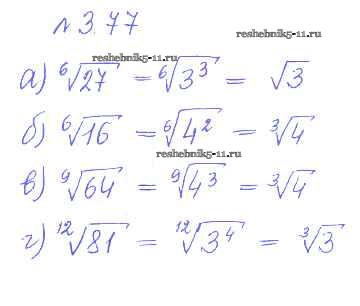 №3.77
reshebnik5-11.ru
reshebnik5-11.ru
а) ⁶√27 = ⁶√3³ = √3
б) ⁶√16 = ⁶√4² = ³√4
reshebnik5-11.ru
в) ⁹√64 = ⁹√4³ = ³√4
г) ¹²√81 = ¹²√3⁴ = ³√3